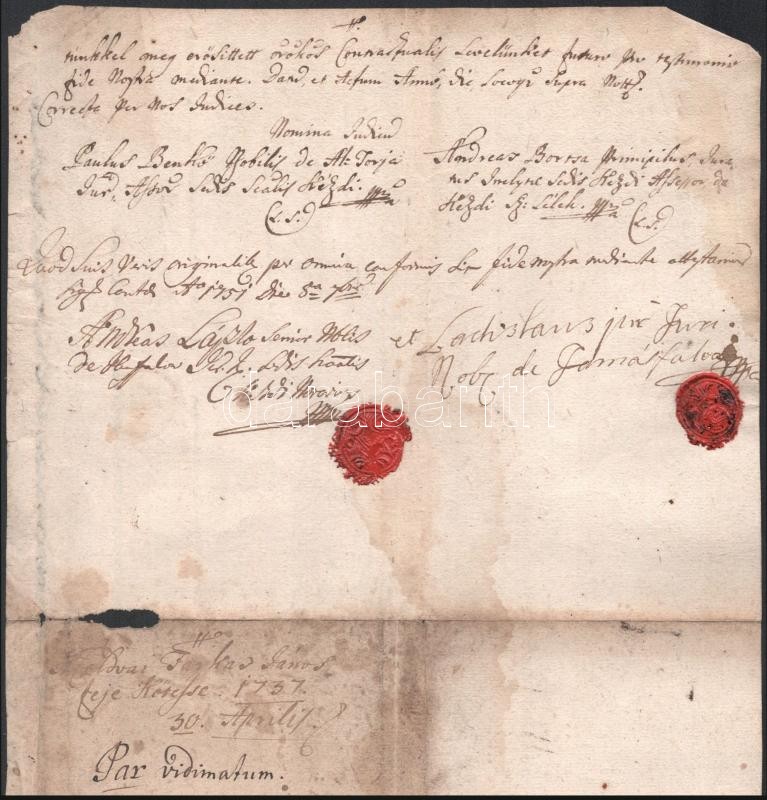 tünkkel meg erösittett örökös Contractualis Levelünket futuro pro testimonio
fide Nostra mediante. Datū et Actum Anno, die Locoqz supra Nott.
Correcta per Nos Judices.
Nomina Judicū
Paulus Benkö Nobilis de Al: Torja
Jur. Assor Sedis Scalis Kézdi. mp
(L.S.)
Andreas Bortsa primipilus Jura
tus Inclyte Sedis Kézdi Assessor de
Kézdi Sz: Lélek. mp
(L.S.)
Quod suis Veris originalib per omnia conformis sit fide nostra mediante attestamur
Ao 1751 Die 8a
Andreas Lászlo Senior Nblis
de Sedis
et Ladislaus Juri.
Nob. de Tamásfalva mp
databanth
Farkas János
feje Kötesse. 1737.
30. Aprilis
Par vidimatum.